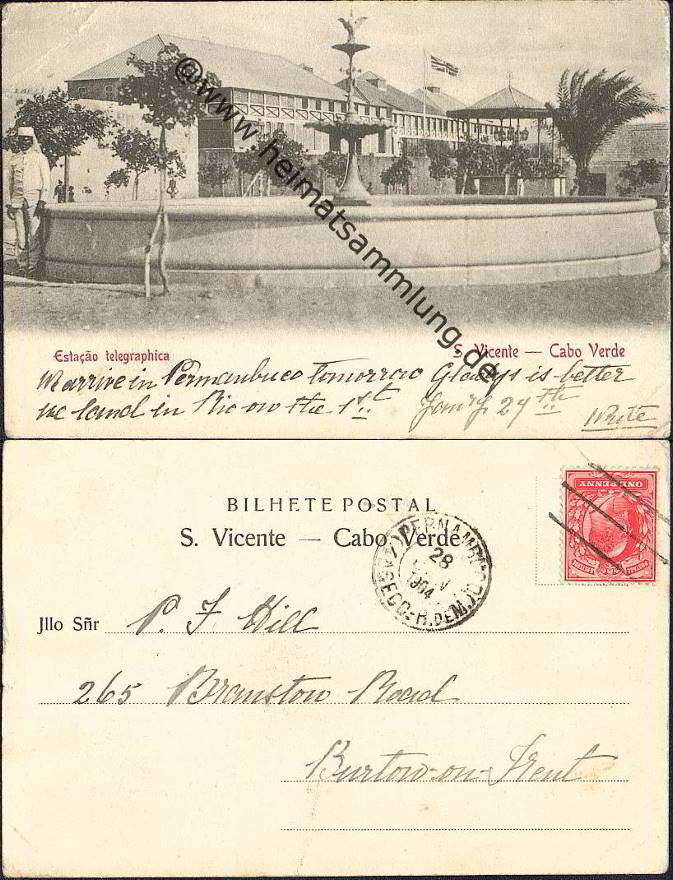 @www.heimatsammlung.de
Estação telegraphica
S. Vicente — Cabo Verde
We arrive in Pernambuco tomorrow Gladys is better
we land in Rio on the 1st. Jan'y 27th
Write
BILHETE POSTAL
S. Vicente — Cabo Verde
PERNAMBUCO
28
1904
ONE PENNY
Jllo Sñr P. F. Hill
265 Branston Road
Burton-on-Trent